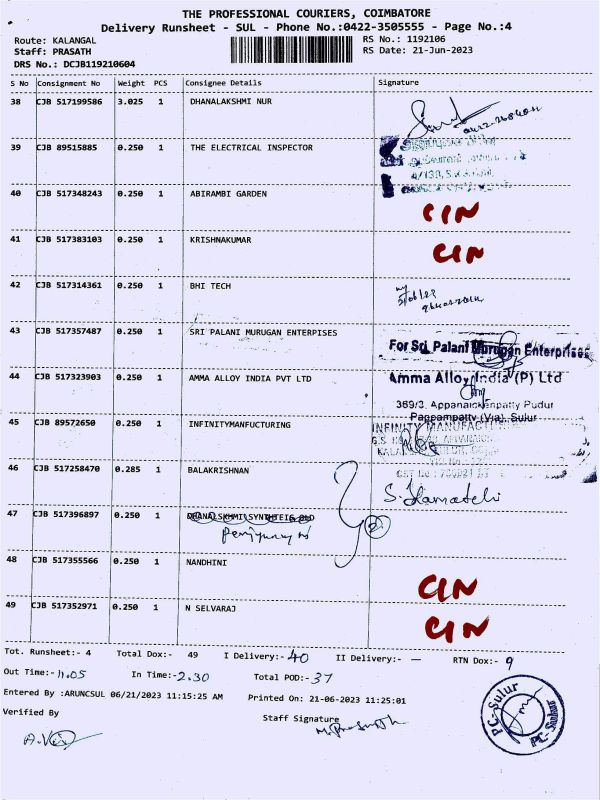 THE PROFESSIONAL COURIERS, COIMBATORE
Delivery Runsheet - SUL - Phone No.:0422-3505555 - Page No.:4
Route: KALANGAL RS No.: 1192106
Staff: PRASATH RS Date: 21-Jun-2023
DRS No.: DCJB119210604
S No Consignment No Weight PCS Consignee Details Signature
38 CJB 517199586 3.025 1 DHANALAKSHMI NUR
39 CJB 89515885 0.250 1 THE ELECTRICAL INSPECTOR
40 CJB 517348243 0.250 1 ABIRAMBI GARDEN CIN
41 CJB 517383103 0.250 1 KRISHNAKUMAR CIN
42 CJB 517314361 0.250 1 BHI TECH
43 CJB 517357487 0.250 1 SRI PALANI MURUGAN ENTERPISES
For Sri Palani Murugan Enterprises
44 CJB 517323903 0.250 1 AMMA ALLOY INDIA PVT LTD
Amma Alloy India (P) Ltd
369/3, Appanaickenpatty Pudur
Pappampatty (Via), Sulur
45 CJB 89572650 0.250 1 INFINITYMANFUCTURING
INFINITY MANUFACTURING
46 CJB 517258470 0.285 1 BALAKRISHNAN
47 CJB 517396897 0.250 1 DHANALSKHMI SYNTHTEIC OLD
48 CJB 517355566 0.250 1 NANDHINI CIN
49 CJB 517352971 0.250 1 N SELVARAJ CIN
Tot. Runsheet:- 4 Total Dox:- 49 I Delivery:- 40 II Delivery:- — RTN Dox:- 9
Out Time:- 11.05 In Time:- 2.30 Total POD:- 37
Entered By :ARUNCSUL 06/21/2023 11:15:25 AM Printed On: 21-06-2023 11:25:01
Verified By Staff Signature
M. Prasanth
PC-Sulur